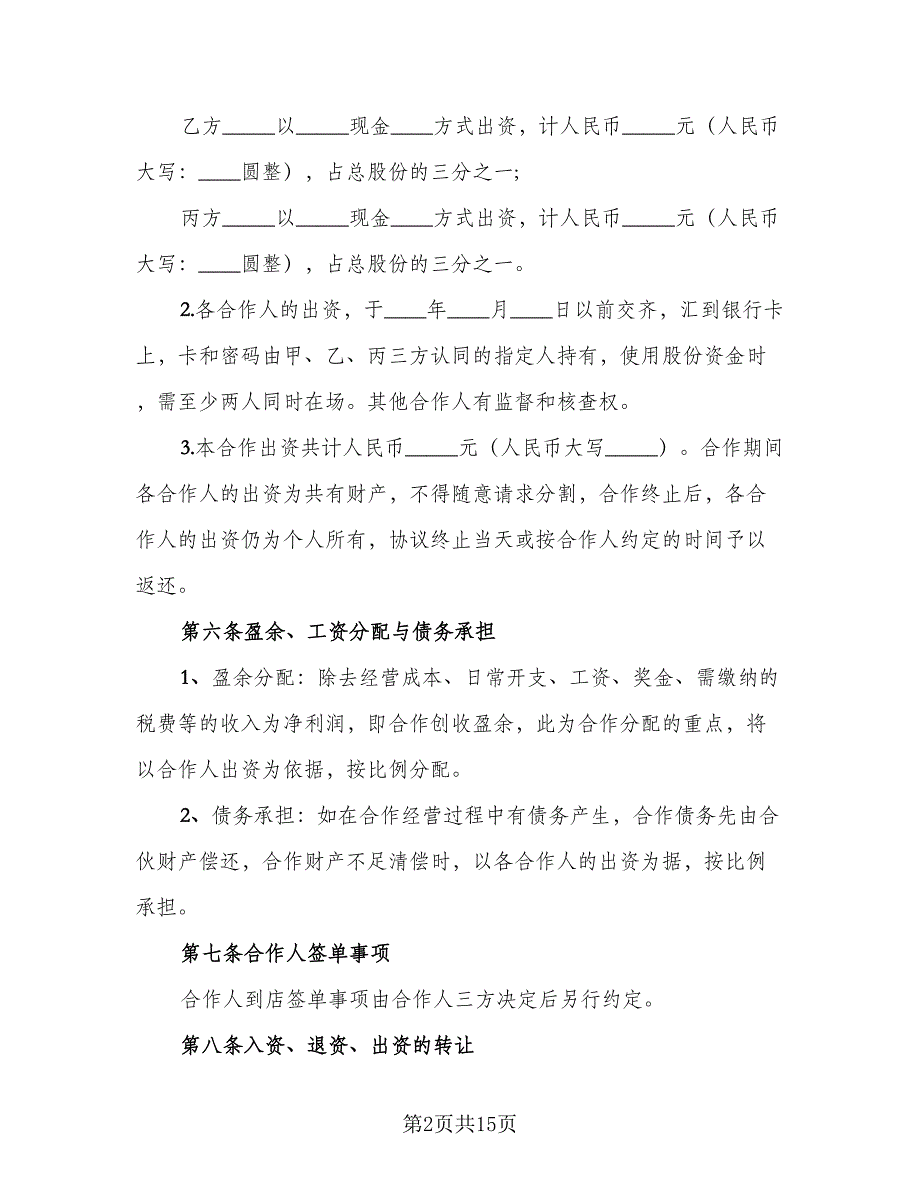 乙方_____以_____现金____方式出资，计人民币_____元（人民币
大写：____圆整），占总股份的三分之一;
丙方_____以_____现金____方式出资，计人民币_____元（人民币
大写：____圆整），占总股份的三分之一。
2.各合作人的出资，于____年____月____日以前交齐，汇到银行卡
上，卡和密码由甲、乙、丙三方认同的指定人持有，使用股份资金时
，需至少两人同时在场。其他合作人有监督和核查权。
3.本合作出资共计人民币_____元（人民币大写_____）。合作期间
各合作人的出资为共有财产，不得随意请求分割，合作终止后，各合
作人的出资仍为个人所有，协议终止当天或按合作人约定的时间予以
返还。
第六条盈余、工资分配与债务承担
1、盈余分配：除去经营成本、日常开支、工资、奖金、需缴纳的
税费等的收入为净利润，即合作创收盈余，此为合作分配的重点，将
以合作人出资为依据，按比例分配。
2、债务承担：如在合作经营过程中有债务产生，合作债务先由合
伙财产偿还，合作财产不足清偿时，以各合作人的出资为据，按比例
承担。
第七条合作人签单事项
合作人到店签单事项由合作人三方决定后另行约定。
第八条入资、退资、出资的转让
第2页共15页